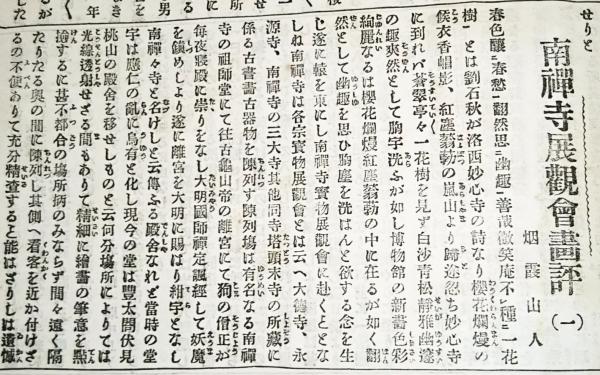 せりと
南禪寺展觀會畫評（一）
烟霞山人
春色釀春愁翻然思幽趣善哉微笑庵不種一花
樹とは劉石秋が洛西妙心寺の詩なり櫻花爛熳の
候衣香帽影、紅塵蓊勃の嵐山より歸途忽ち妙心寺
に到れバ蒼翠亭々一花樹を見ず白沙青松靜雅幽邃
の趣爽然として胸宇洗ふが如し博物館の新畵色彩
絢麗なるは櫻花爛熳紅塵蓊勃の中に在るが如く翻
然として幽趣を思ひ胸塵を洗はんと欲する念を生
じ遂に轅を東にし南禪寺寶物展觀會に赴くとゝな
しぬ南禪寺は各宗寳物展觀會とは云へ大德寺、永
源寺、南禪寺の三大寺其他同寺塔頭末寺の所藏に
係る古書畵古器物を陳列す陳列塲は有名なる南禪
寺の祖師堂にて往古龜山帝の離宮にて狗の僧正が
每夜寢殿に祟りをなし大明國師禪定諷經して妖魔
を鎭めしより遂に離宮を大明に賜はり紺宇となし
南禪々寺と名けしと云傳ふる殿舍なれど當時の堂
宇は應仁の亂に烏有と化し現今の堂は豐太閤伏見
桃山の殿舍を移せしものと云何分塲所によりては
光線透射せざる間もありて精細に繪畵の筆意を點
撿するに甚不都合の塲所柄のみならず間々遠く隔
たりたる奧の間に陳列し其側へ看客を近か付けざ
るの不便ありて充分精査すると能はざりしは遺憾